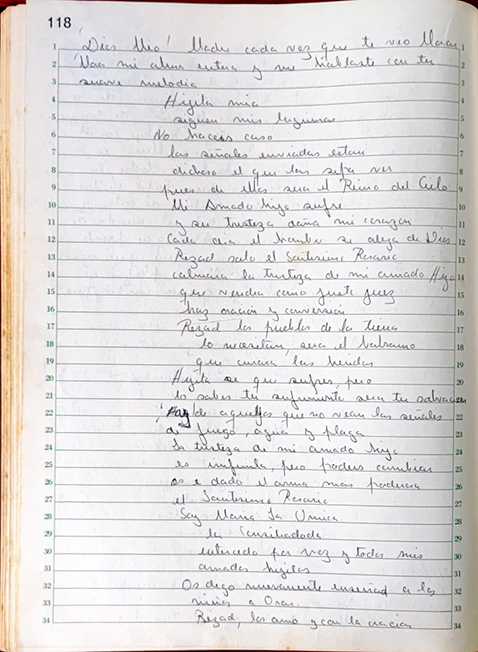 118
¡Dios Mio! Madre cada vez que te veo llorar
mi alma entera y me hablaste con tu
suave melodia
Hijita mia
siguen mis lagrimas
No haceis caso
las señales enviadas estan
dichoso el que las sepa ver
pues de ellos sera el Reino del Cielo
Mi Amado hijo sufre
y su tristeza daña mi corazon
Cada dia el hombre se aleja de Dios
Rezad solo el Santisimo Rosario
calmara la tristeza de mi amado Hijo
que vendra como justo juez
haz oracion y conversion
Rezad los pueblos de la tierra
lo necesitan, sera el balsamo
que curara las heridas
Hijita se que sufres, pero
lo sabes tu sufrimiento sera tu salvacion
¡Hay de aquellos que no vean las señales
de fuego, agua y plaga
La tristeza de mi amado hijo
es infinita, pero podeis cambiar
os e dado el arma mas poderosa
el Santisimo Rosario
Soy Maria La Unica
la
intercedo por voz y todos mis
amados hijitos
Os digo nuevamente enseñad a los
niños a Orar.
Rezad, los amo y con la oracion